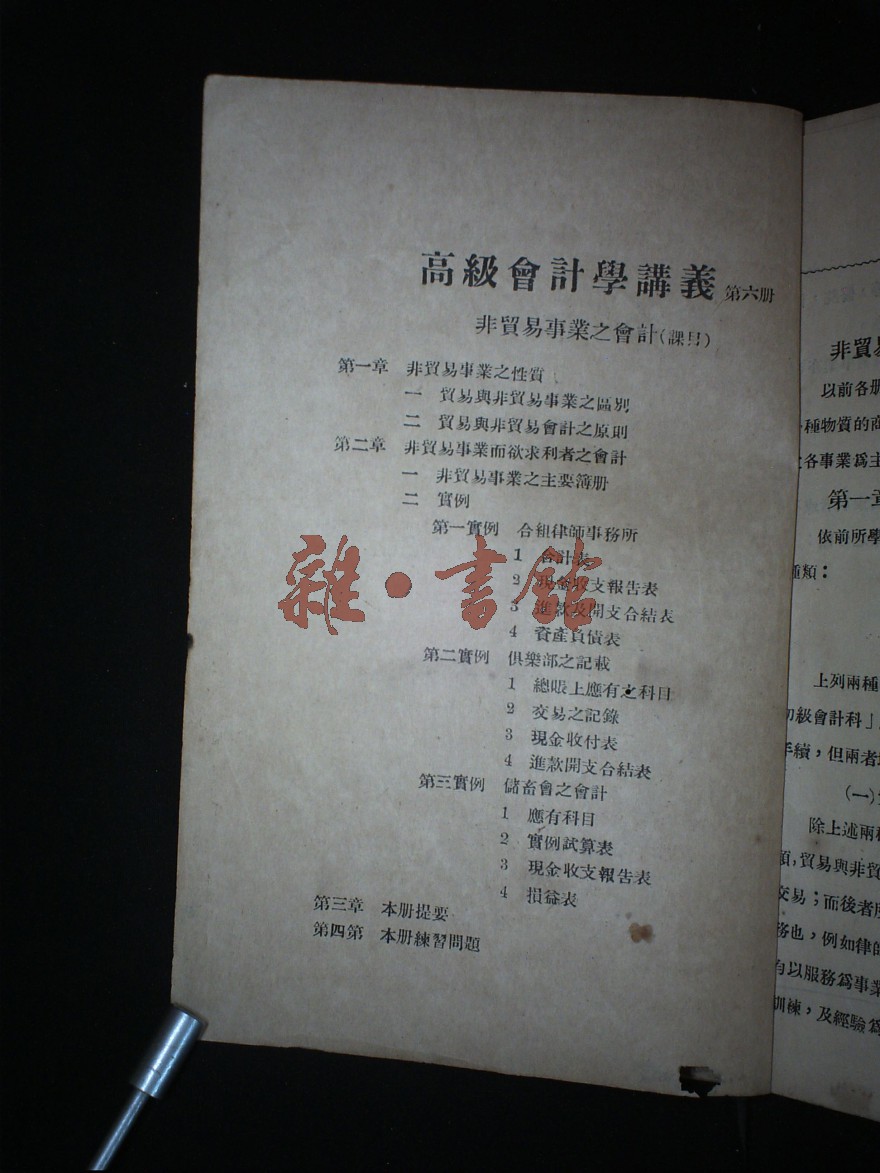 高級會計學講義 第六册
非貿易事業之會計(課目)
第一章 非貿易事業之性質
一 貿易與非貿易事業之區別
二 貿易與非貿易會計之原則
第二章 非貿易事業而欲求利者之會計
一 非貿易事業之主要簿册
二 實例
第一實例 合組律師事務所
1 合計表
2 現金收支報告表
3 進款及開支合結表
4 資產負債表
第二實例 俱樂部之記載
1 總賬上應有之科目
2 交易之記錄
3 現金收付表
4 進款開支合結表
第三實例 儲畜會之會計
1 應有科目
2 實例試算表
3 現金收支報告表
4 損益表
第三章 本册提要
第四第 本册練習問題
雜·書館
非貿易
以前各册
種物質的商
各事業爲主
第一章
依前所學
種類：
上列兩種
初級會計科」
手續，但兩者
(一)
除上述兩種
項，貿易與非貿
交易；而後者
務也，例如律師
以服務爲事業
訓練，及經驗爲